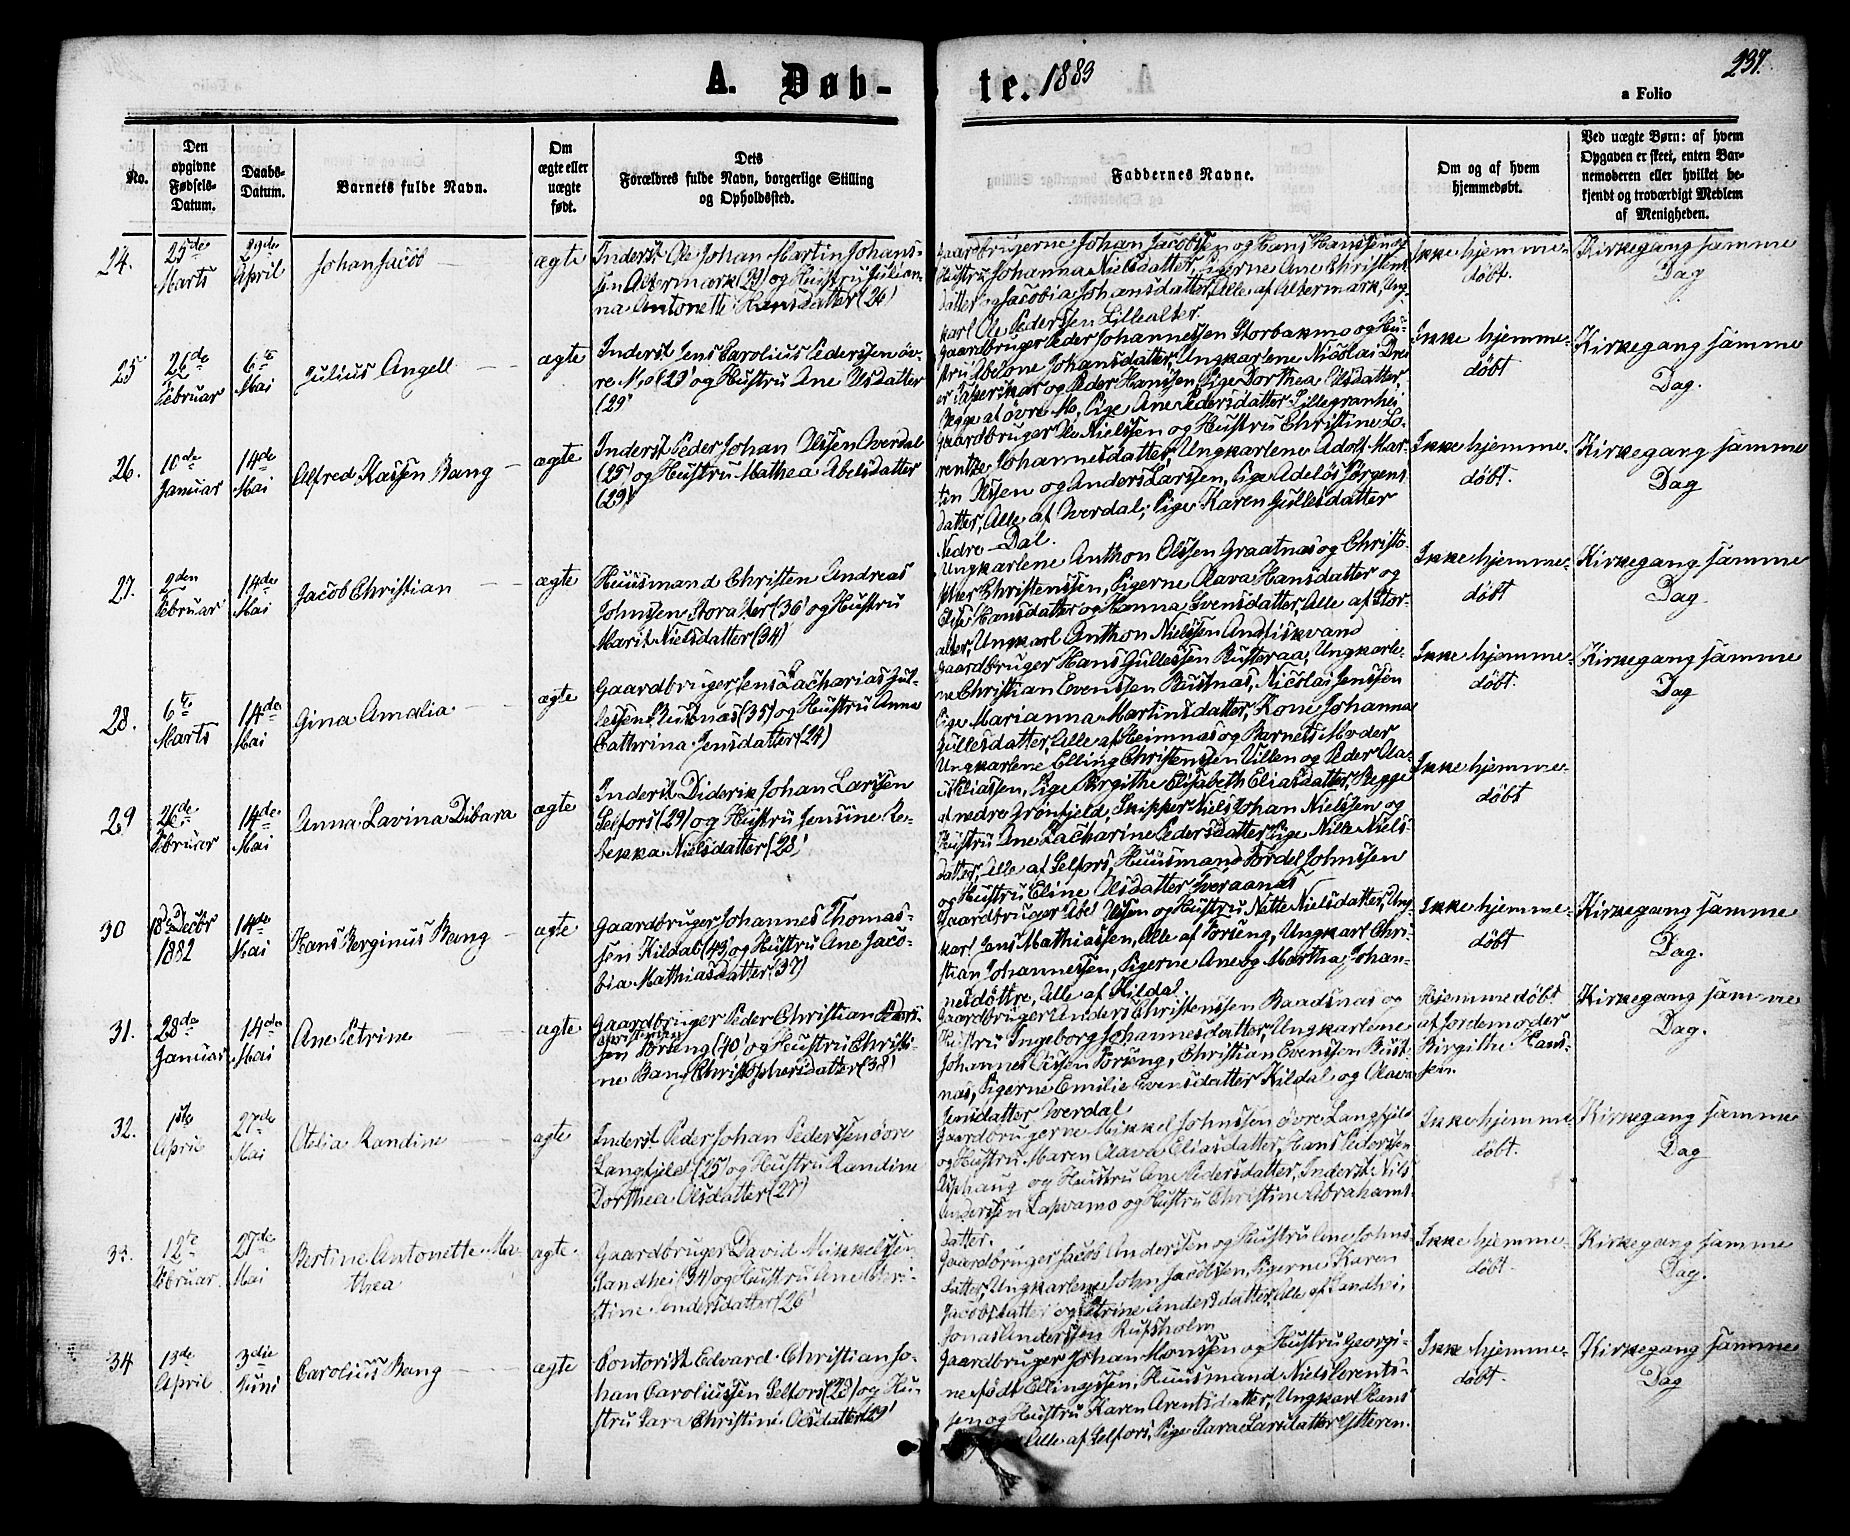 237.
A. Døb-
te. 1883
a Folio
No.
Den
opgivne
Fødsels-
Datum.
Daabs-
Datum.
Barnets fulde Navn.
Om
ægte eller
uægte
født.
Dets
Forældres fulde Navn, borgerlige Stilling
og Opholdssted.
Faddernes Navne.
Om og af hvem
hjemmedøbt.
Ved uægte Børn: af hvem
Opgaven er skeet, enten Bar-
nemoderen eller hvilket be-
kjendt og troværdigt Medlem
af Menigheden.
24.
25de
Marts
29de
April
Johan Jacob
ægte
Inderst Ole Johan Martin Johans-
sen Altermark (29) og Hustru Julian-
na Antonette Hansdatter (26)
Gaardbrugerne Johan Jacobsen og Hans Hanssen og
Hustru Johanna Nielsdatter, Pigerne Ane Christens
datter og Jacobia Johansdatter, Alle af Altermark, Ung-
karl Ole Pederssen Lillealter.
Ikke hjemme-
døbt.
Kirkegang samme
Dag
25
26de
Februar
6te
Mai
Julius Angell
ægte
Inderst Jens Carolius Pederssen øv-
re Mo (23) og Hustru Ane Olsdatter
(29)
Gaardbruger Peder Johannessen Storbakmo og Hu-
stru Abelone Johansdatter, Ungkarlene Nicolai Drei
er og Peder Hanssen, Pige Dorthea Olsdatter,
Begge af øvre Mo, Pige Ane Pedersdatter Lillegranhei
Ikke hjemme-
døbt
Kirkegang samme
Dag.
26.
10de
Januar
14de
Mai
Alfred Kassen Bang
ægte
Inderst Peder Johan Olssen Averdal
(25) og Hustru Mathea Abelsdatter
(29)
Gaardbruger Ole Nielssen og Hustru Christine Lo-
rentze Johannesdatter, Ungkarlene Adolf Mar-
tin Olssen og Anders Larssen, Pige Adeløs Jørgens
datter, Alle af Averdal; Pige Karen Gullesdatter
Nedre-Dal.
Ikke hjemme-
døbt.
Kirkegang samme
Dag
27.
2den
Februar
14de
Mai
Jacob Christian
ægte
Huusmand Christen Andreas
Johnssen Storalter (36) og Hustru
Marit Nielsdatter (34)
Ungkarlene Anthon Olssen Graatnas og Christo-
pher Christenssen, Pigerne Olava Hansdatter og
Else Hansdatter og Hanna Svensdatter, Alle af Stor-
alter, Ungkarl Anthon Nielssen Andfiskvand
Ikke hjemme-
døbt
Kirkegang samme
Dag.
28.
6te
Marts
14de
Mai
Gina Amalia
ægte
Gaardbruger Jens Zacharias Gul-
lessen Rustnas (35) og Hustru Anna
Cathrina Jensdatter (24)
Gaardbruger Hans Gullessen Busteraa, Ungkarle-
ne Christian Evenssen Bustnas, Nicolas Jenssen
Pige Marianna Martinsdatter, Kone Johanna
Gullesdatter, Alle af Heimnas og Barnets Moder
Ikke hjemme-
døbt
Kirkegang samme
Dag
29
26de
Februar
14de
Mai
Anna Lavina Dibara
ægte
Inderst Diderik Johan Larssen
Selfors (29) og Hustru Jensine Re-
bekka Nielsdatter (28)
Ungkarlene Elling Christenssen Villen og Peder Ola-
us Eliassen, Pige Birgithe Elisabeth Eliasdatter, Begge
af nedre Grønfjeld, Skipper Niels Johan Nielssen og
Hustru Ane Zacharine Pedersdatter, Pige Nille Niels-
datter, Alle af Selfors, Huusmand Tordel Johnssen
og Hustru Eline Olsdatter Tveraanas
Ikke hjemme-
døbt
30
18de Decbr
1882
14de
Mai
Hans Berginus Bang
ægte
Gaardbruger Johannes Thomas-
sen Kildal (43) og Hustru Ane Jaco-
bia Mathiasdatter (37)
Gaardbruger Abel Olssen og Hustru Natte Nielsdatter, Ung-
karl Jens Mathiassen, Alle af Forseng, Ungkarl Chri-
stian Johannessen, Pigerne Ane og Martha Johan-
nesdøttre, Alle af Kildal.
Ikke hjemme-
døbt
Kirkegang samme
Dag.
31.
28de
Januar
14de
Mai
Ane Petrine
ægte
Gaardbruger Peder Christian
sen Forseng (40) og Hustru Christi-
ne Bang Christophersdatter (38)
Gaardbruger Anders Christenssen Baadsnas og
Hustru Ingeborg Johannesdatter, Ungkarlene
Johannes Olssen Forseng, Christian Evenssen Bust-
nas, Pigerne Emilie Evensdatter Kildal og Olava
Jensdatter Averdal
Hjemmedøbt
af Jordemoder
Birgithe Hans-
sen.
Kirkegang samme
Dag.
32.
1ste
April
27de
Mai
Otelia Randine
ægte
Inderst Peder Johan Pederssen øvre
Langfjeld (25) og Hustru Randine
Dorthea Olsdatter (27)
Gaardbrugerne Mikkel Johnssen øvre Langfjeld
og Hustru Maren Olava Eliasdatter, Hans Pederssen
Asphaug og Hustru Ane Pedersdatter, Inderst Nils
Anderssen Lapvamo og Hustru Christine Abrahams-
datter.
Ikke hjemme
døbt.
Kirkegang samme
Dag
33.
12te
Februar
27de
Mai
Bertine Antonette Ma-
thea
ægte
Gaardbruger David Mikkelssen
Sandhei (34) og Hustru Ane Chri-
stine Andersdatter (26)
Gaardbruger Jacob Anderssen og Hustru Ane Johns-
datter, Ungkarlene John Jacobsen, Pigerne Karen
Jacobsdatter og Petrine Andersdatter, Alle af Sandhei,
Jonas Anderssen Rufsholm
Ikke hjemme-
døbt.
Kirkegang samme
Dag.
34
13de
April
3die
Juni
Carolius Bang
ægte
Contorist Edvard Christian Jo-
han Caroliussen Selfors (23) og Hu-
stru Sara Christine Olsdatter (29)
Gaardbruger Johan Monssen og Hustru Georgi-
ne født Ellingssen, Huusmand Niels Lorents-
sen og Hustru Karen Arentsdatter, Ungkarl Hans
Alle af Selfors, Pige Sara Larsdatter Ytteren.
Ikke hjemme-
døbt.
Kirkegang samme
Dag